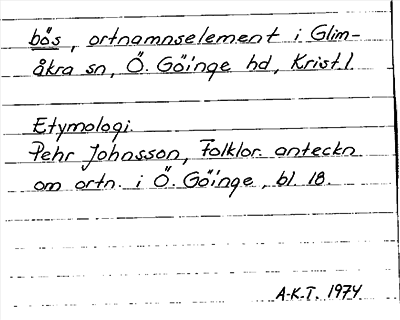 bös, ortnamnselement i Glim-
åkra sn, Ö. Göinge hd, Krist. l.
Etymologi.
Pehr Johnsson, Folklor. anteckn
om ortn. i Ö. Göinge, bl. 18.
A-K.T. 1974